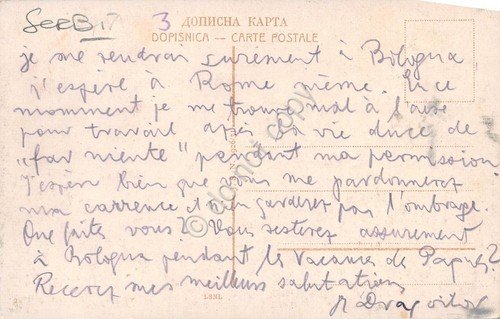 SERB 17
3
ДОПИСНА КАРТА
DOPISNICA — CARTE POSTALE
je me rendrai surement à Bologna
j'espère à Rome même. En ce
momment je me trouve mal à l'aise
pour travail après la vie douce de
"far niente" pendant ma permission
J'espère bien que vous me pardonnerez
ma carrence et n'en garderez pas l'ombrage.
Que faites vous? Vous resterez assurement
à Bologna pendant les vacances de Paques?
Recevez mes meilleurs salutations